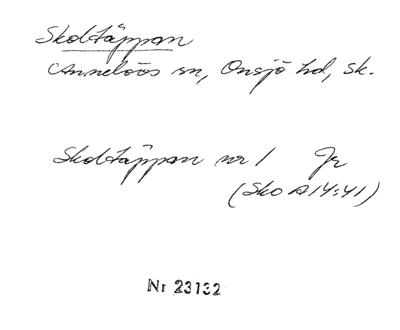 Skoltäppan
Anneløvs sn, Onsjö hd, Sk.
Skoltäppan nr 1 Jr
(Sko A14:41)
Nr 23132